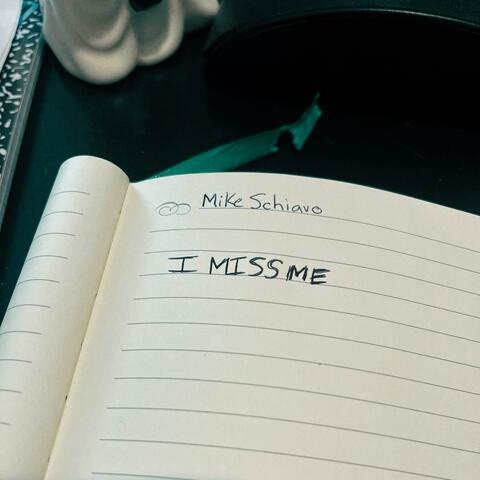 Mike Schiavo
I MISS ME